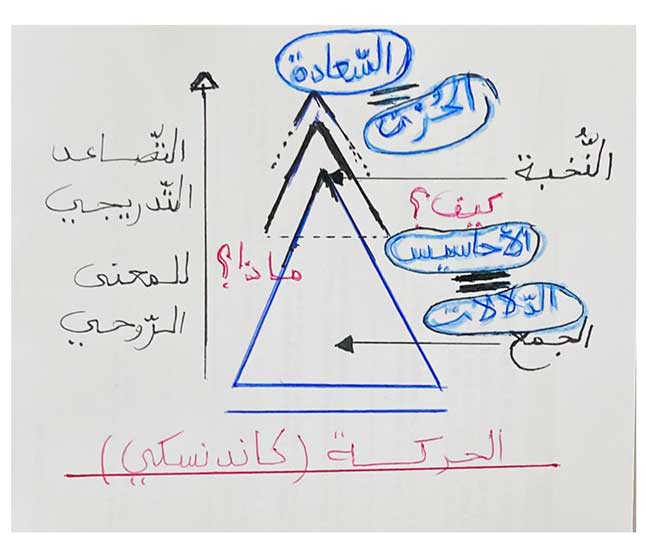 السّعادة
الحُزن
التّصاعد
التّدريجي
للمعنى
الرّوحي
النُّخبة
كيف؟
الأحاسيس
ماذا؟
الدّلالات
الجمع
الحركة (كاندنسكي)